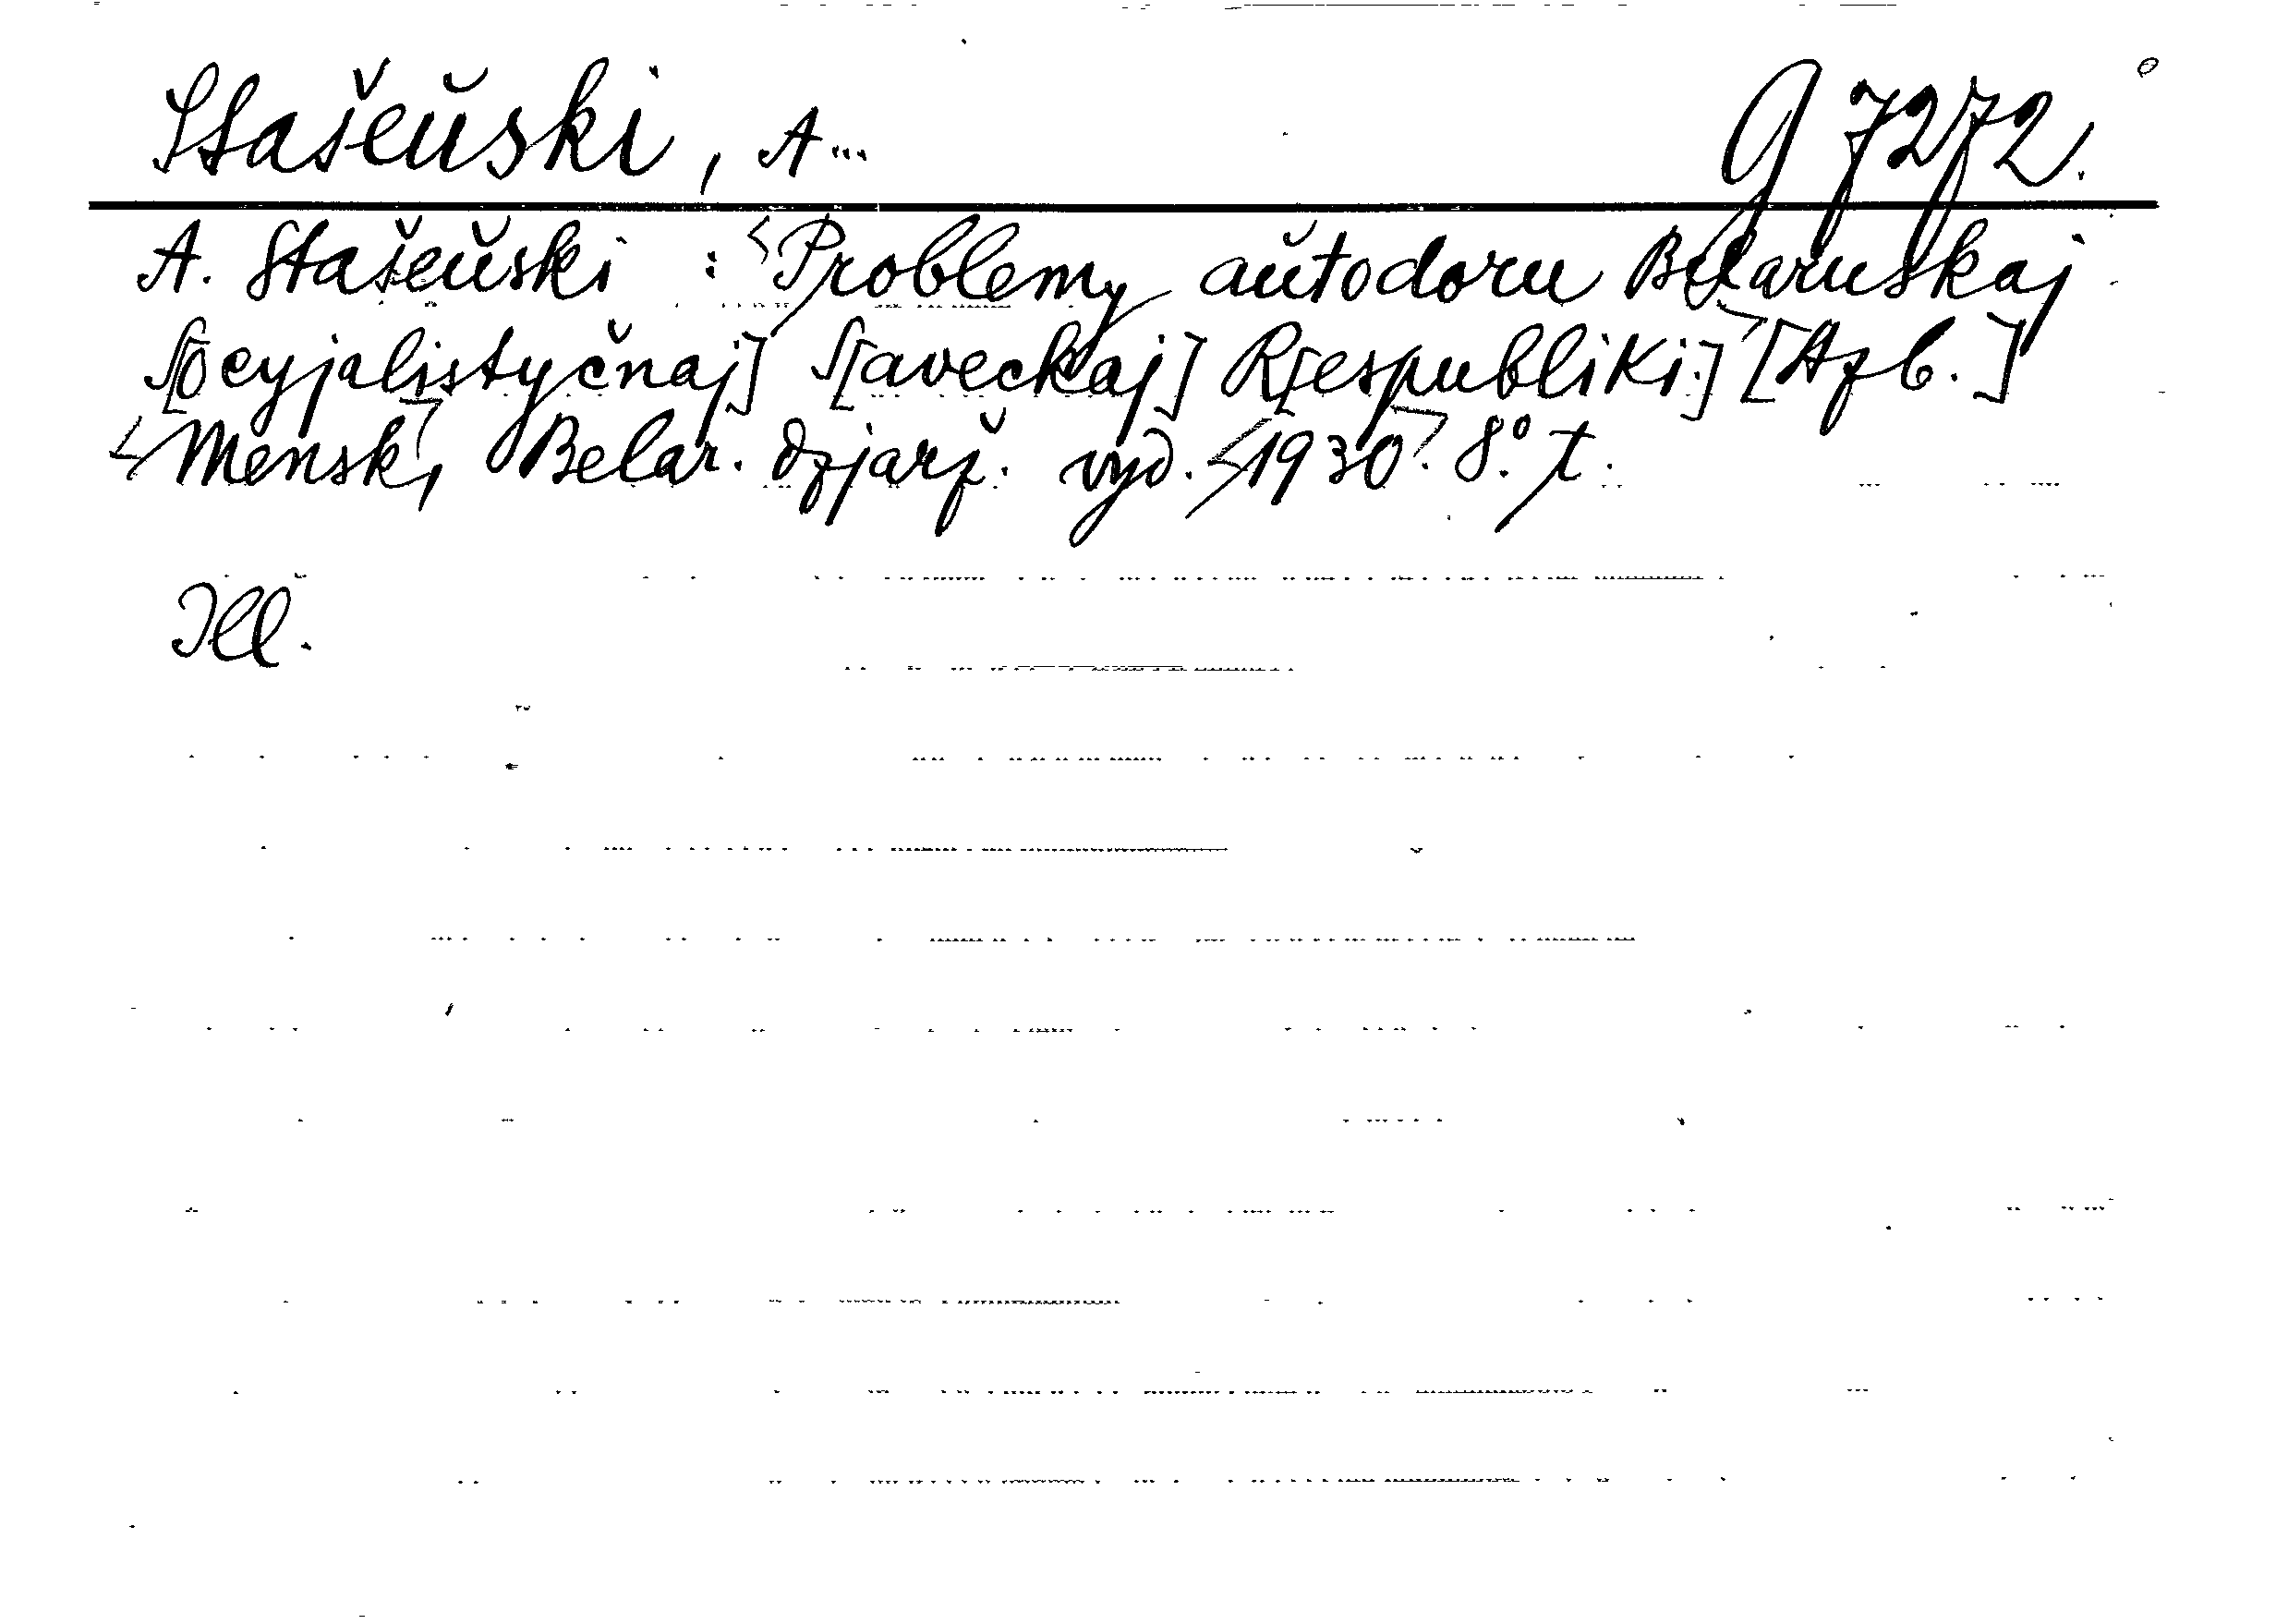 Stašeŭski, A... g 7272.
A. Stašeŭski : <Problemy aŭtodoru Belaruskaj
S[ocyjalistyčnaj] S[aveckaj] R[espubliki.]> [Azb.]
<Mensk>, Belar. dzjarž. vyd. <1930>. 8°. t.
Ill.